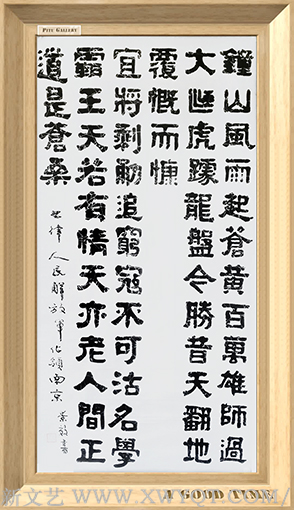 PITU GALLERY
鐘山風雨起蒼黃百萬雄師過
大江虎踞龍盤今勝昔天翻地
覆慨而慷
宜將剩勇追窮寇不可沽名學
霸王天若有情天亦老人間正
道是蒼桑
七律 人民解放軍佔領南京
A GOOD TIME
新文艺